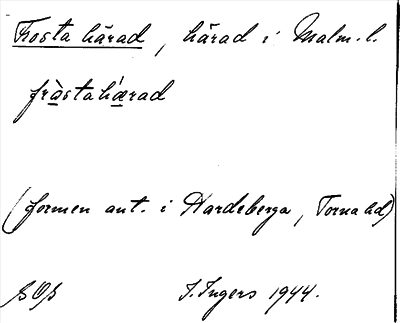 Frosta härad, härad i Malm. l.
fràstahǽrad
(formen ant. i Hardeberga, Torna hd)
SOS I. Ingers 1944.